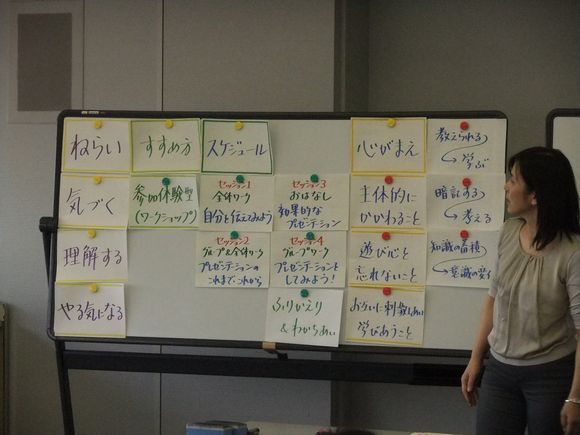 ねらい
気づく
理解する
やる気になる
すすめ方
参加体験型
(ワークショップ)
スケジュール
セッション1
全体ワーク
自分を伝えてみよう
セッション2
グループ&全体ワーク
プレゼンテーションの
これまで・これから
セッション3
おはなし
効果的な
プレゼンテーション
セッション4
グループワーク
プレゼンテーションを
してみよう!
ふりかえり
&わかちあい
心がまえ
主体的に
かかわること
遊び心を
忘れないこと
お互いに刺激しあい
学びあうこと
教えられる
学ぶ
暗記する
考える
知識の蓄積
意識の変容